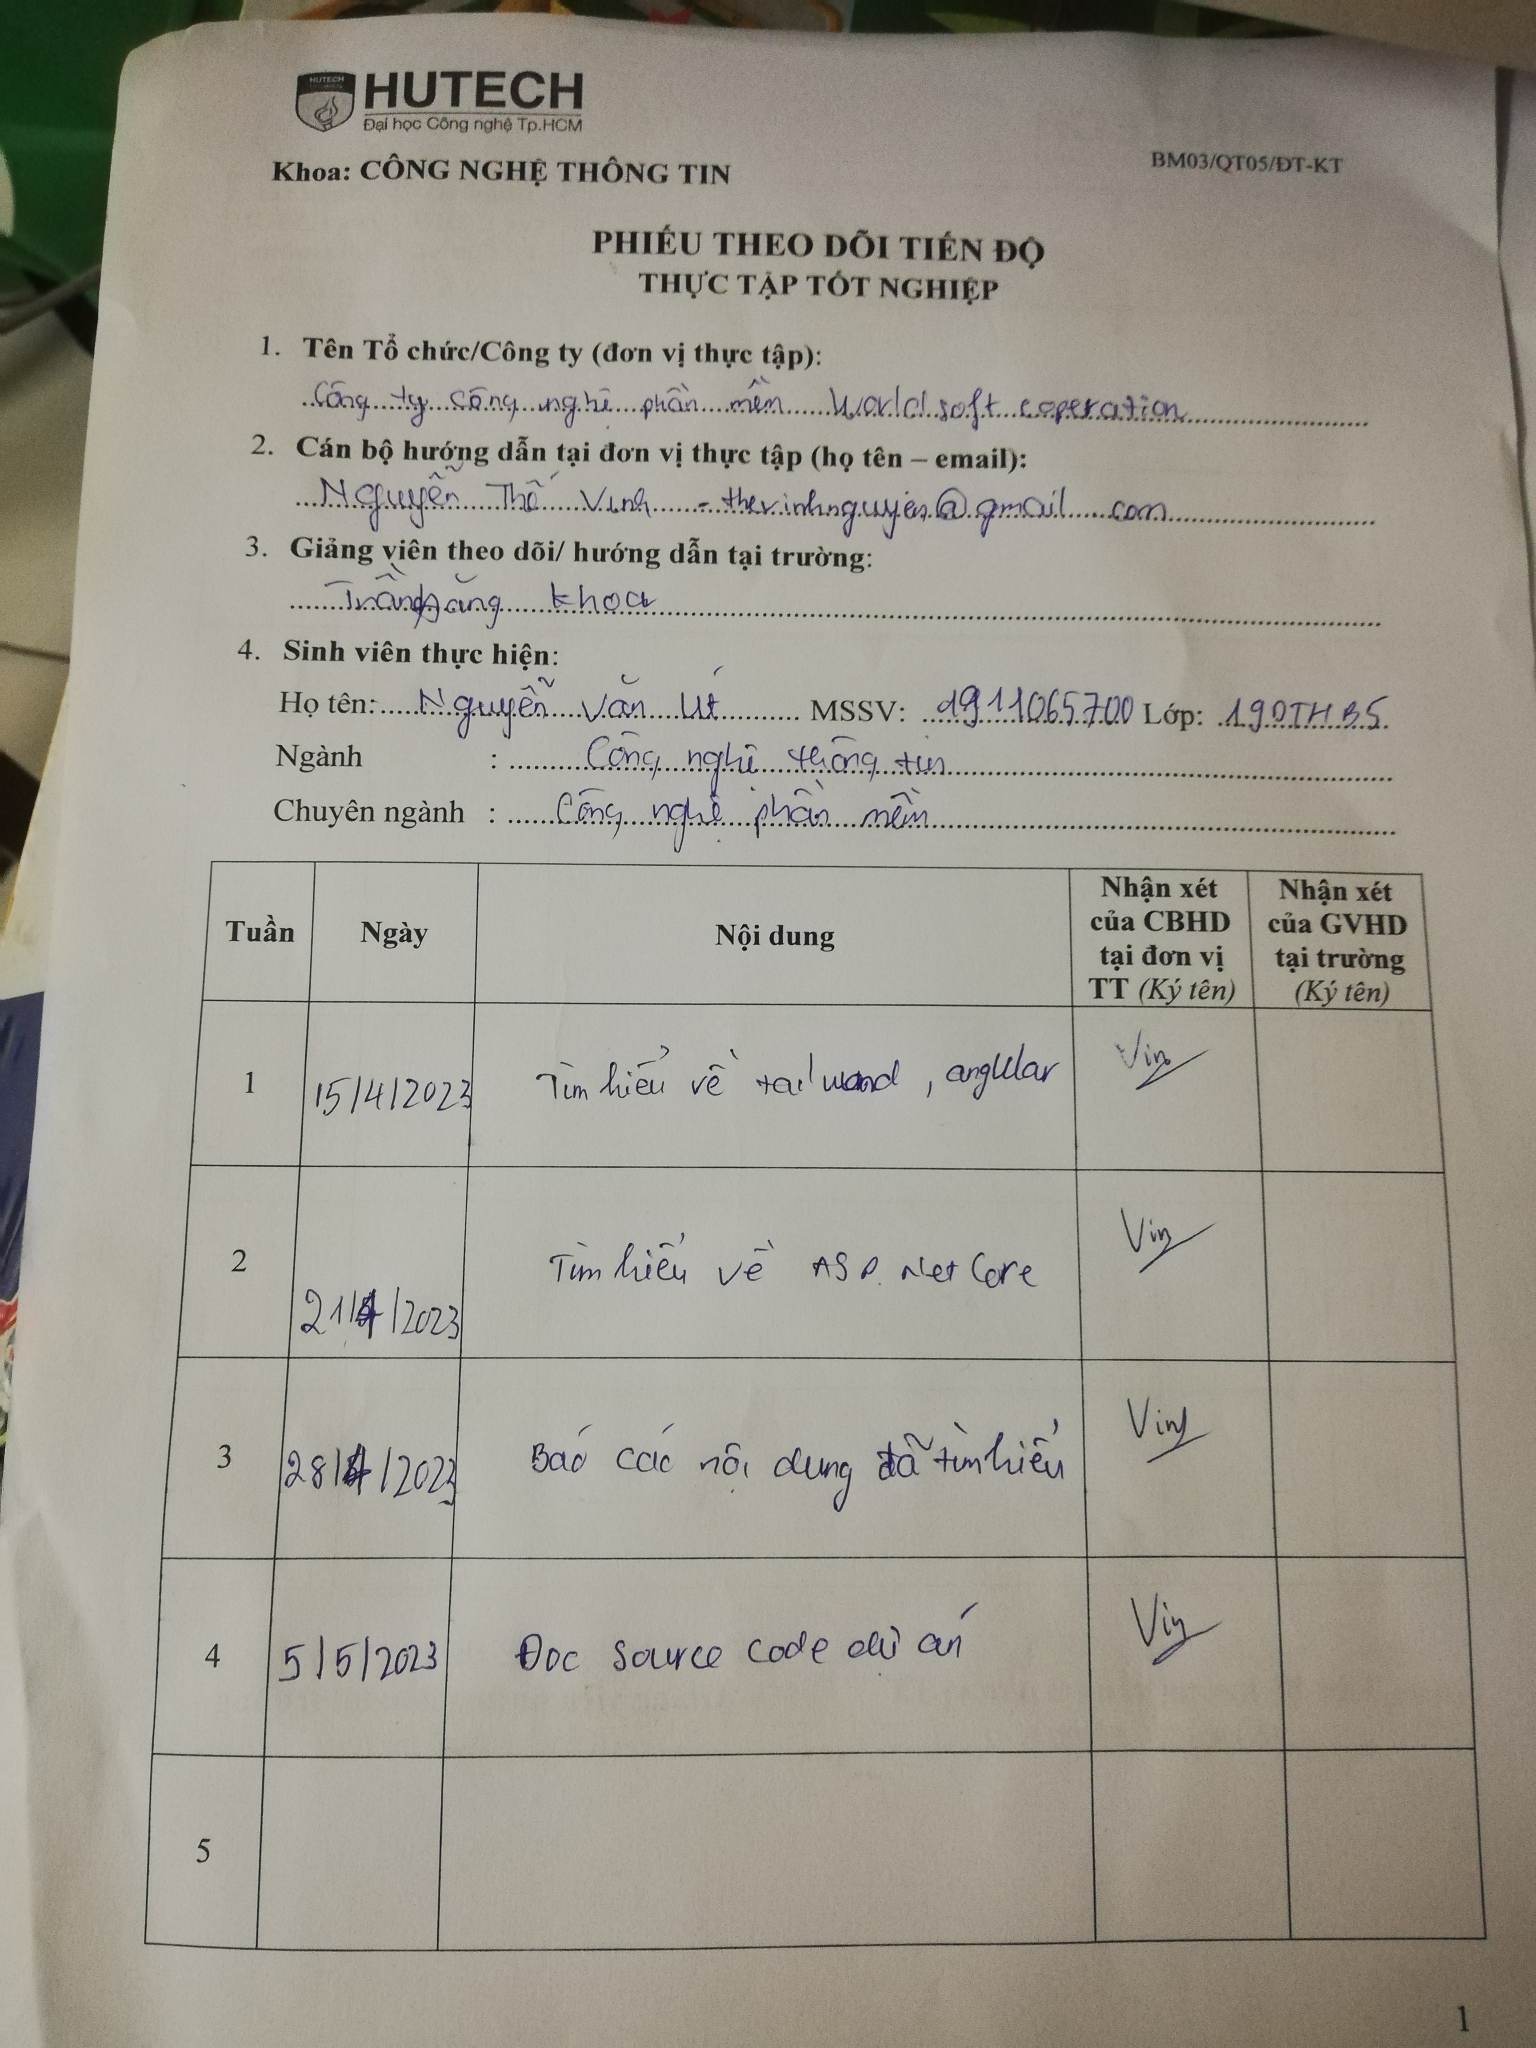 HUTECH
HUTECH
Đại học Công nghệ Tp.HCM
Khoa: CÔNG NGHỆ THÔNG TIN
BM03/QT05/ĐT-KT
PHIẾU THEO DÕI TIẾN ĐỘ
THỰC TẬP TỐT NGHIỆP
1. Tên Tổ chức/Công ty (đơn vị thực tập):
Công ty công nghệ phần mền Worldsoft coperation
2. Cán bộ hướng dẫn tại đơn vị thực tập (họ tên – email):
Nguyễn Thế Vinh - thevinhnguyen@gmail.com
3. Giảng viên theo dõi/ hướng dẫn tại trường:
Trần Đăng Khoa
4. Sinh viên thực hiện:
Họ tên: Nguyễn Văn Út MSSV: 1911065700 Lớp: 19DTHB5
Ngành : Công nghệ thông tin
Chuyên ngành : Công nghệ phần mền
Tuần Ngày Nội dung Nhận xét của CBHD tại đơn vị TT (Ký tên) Nhận xét của GVHD tại trường (Ký tên)
1 15/4/2023 Tìm hiểu về tailwand, angular Vin
2 21/4/2023 Tìm hiểu về ASP.Net Core Vin
3 28/4/2023 Báo các nội dung đã tìm hiểu Vin
4 5/5/2023 Đoc source code dư án Vin
5
1